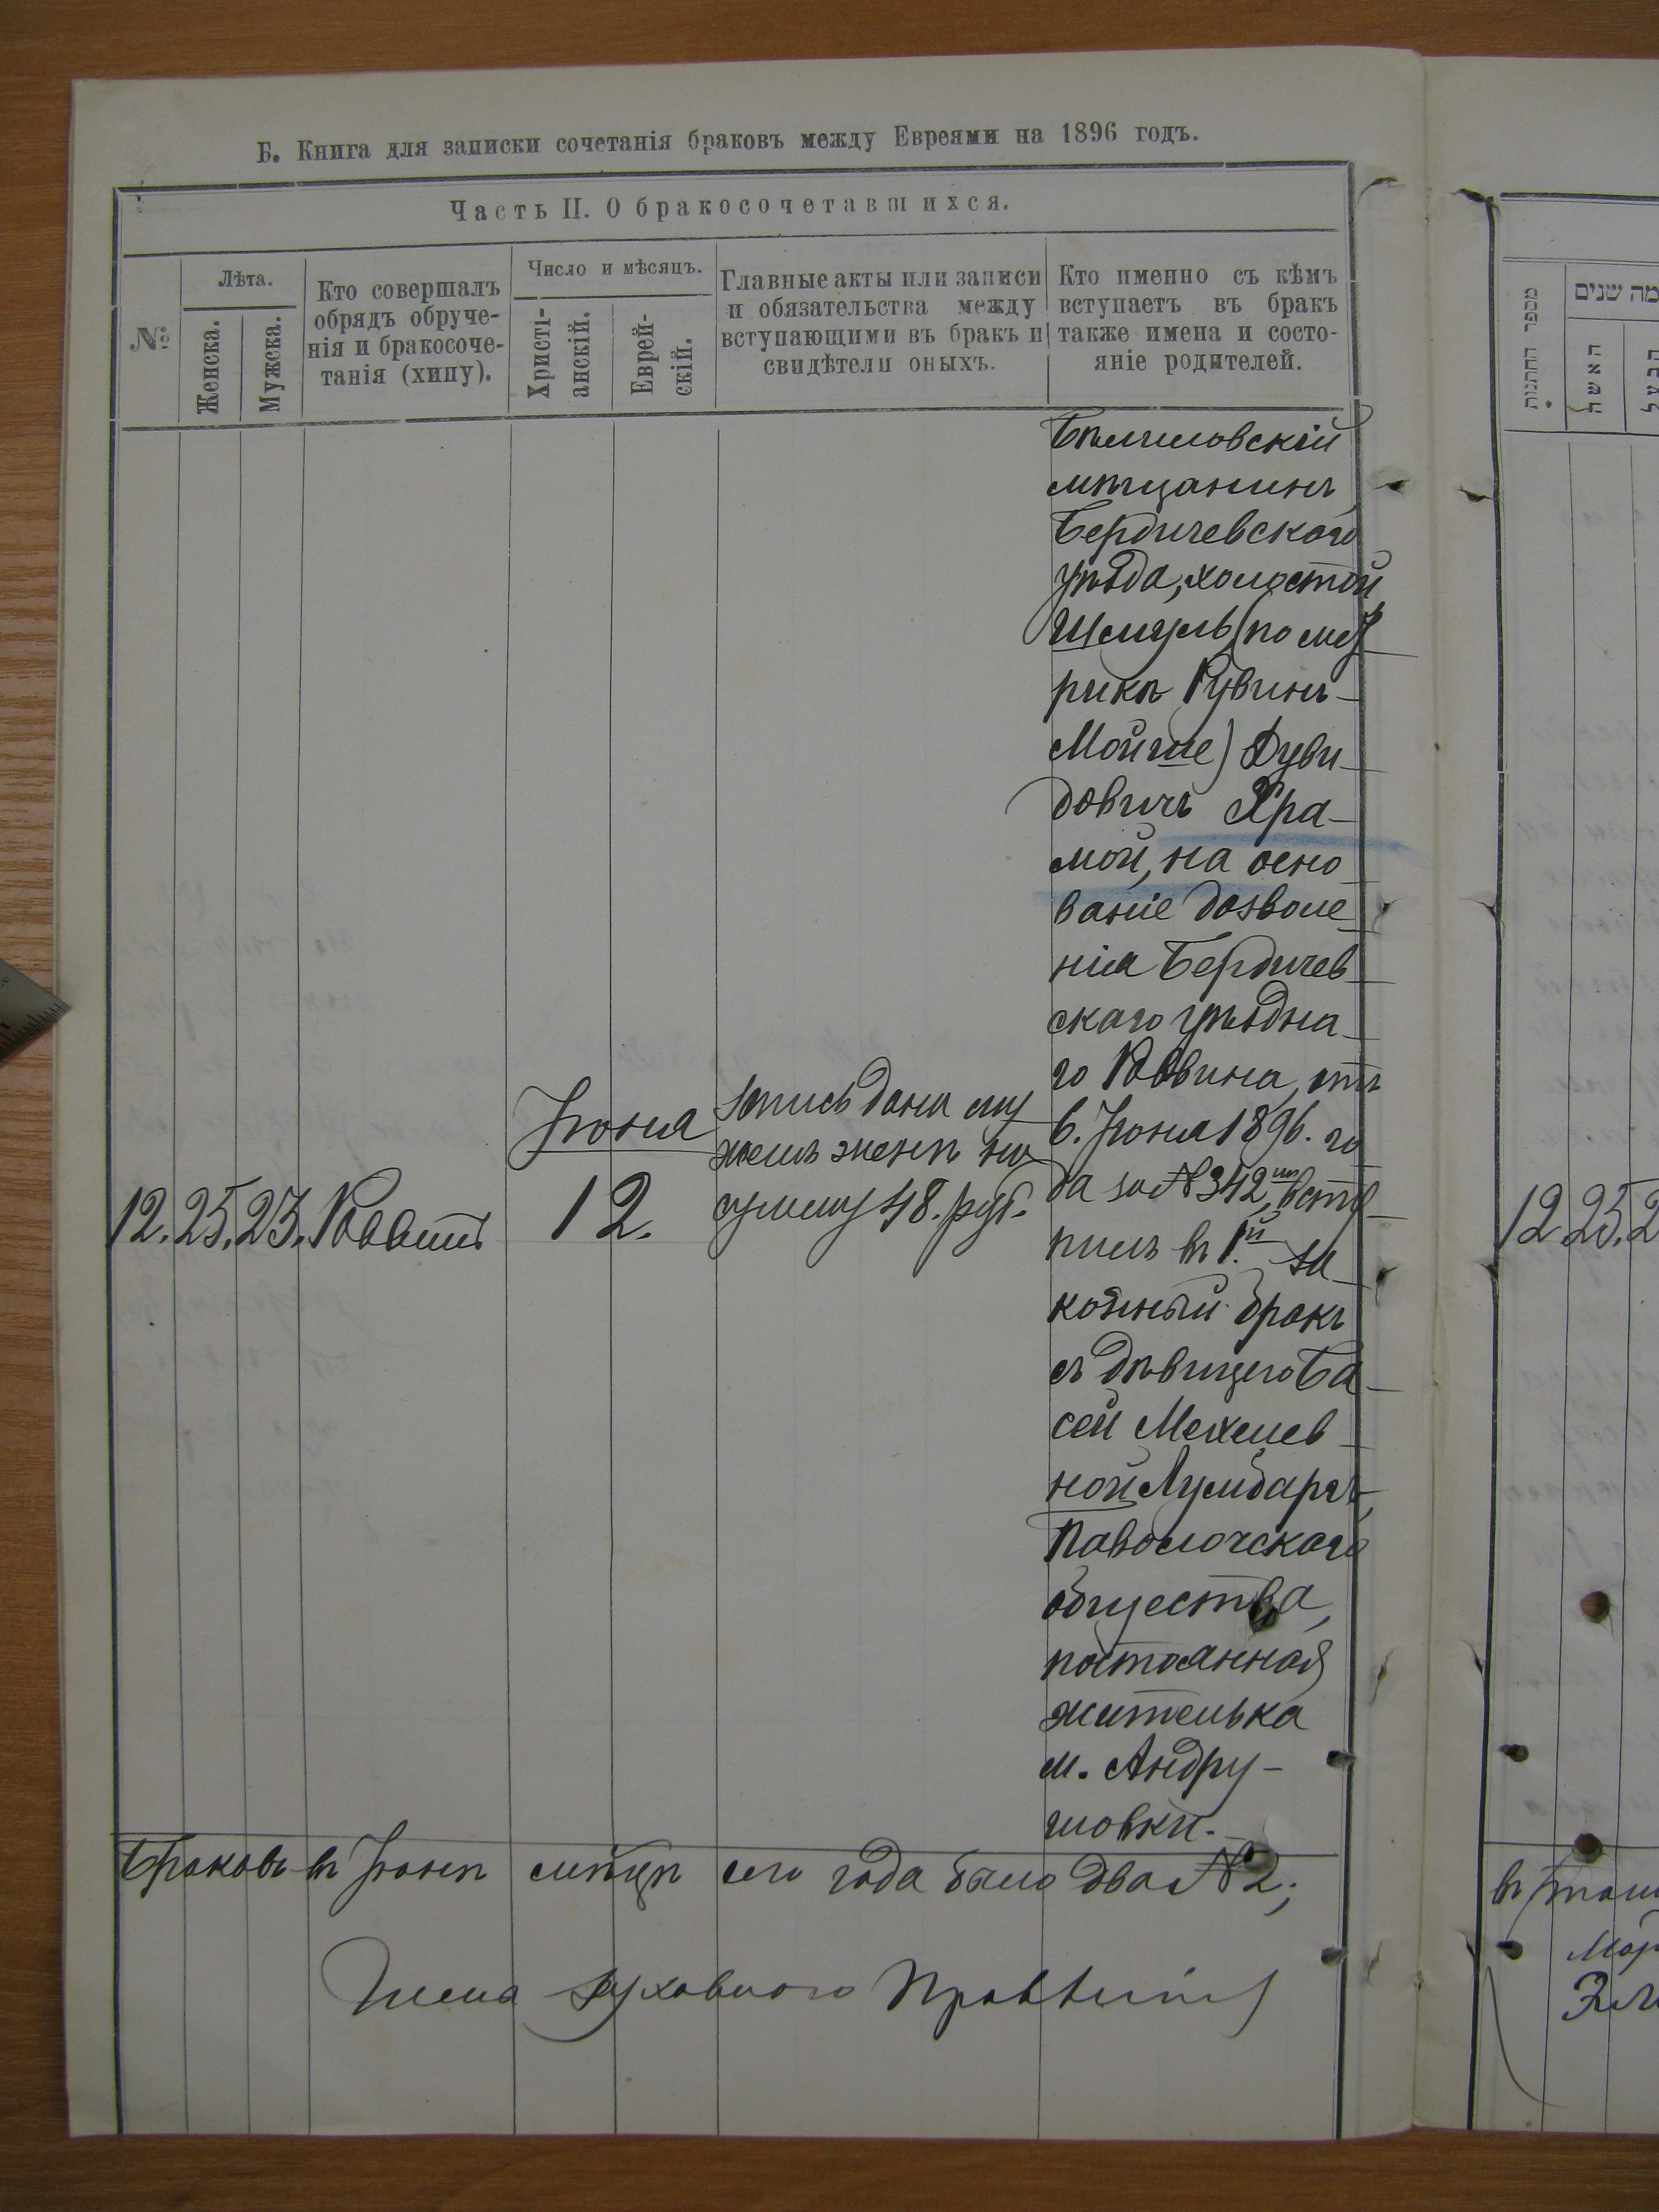 Б. Книга для записки сочетанія браковъ между Евреями на 1896 годъ.
Часть II. О бракосочетавшихся.
№
Лѣта.
Женска.
Мужска.
Кто совершалъ
обрядъ обруче-
нія и бракосоче-
танія (хипу).
Число и мѣсяцъ.
Христі-
анскій.
Еврей-
скій.
Главные акты или записи
и обязательства между
вступающими въ бракъ и
свидѣтели оныхъ.
Кто именно съ кѣмъ
вступаетъ въ бракъ
также имена и состо-
яніе родителей.
12. 25. 23. Раввинъ
Іюня
12.
Запись дана му
жемъ женѣ на
сумму 48. руб.
Бѣлиловскій
мѣщанинъ
Бердичевскаго
уѣзда, холостой
Шмуль (по мет
рикѣ Рувинъ-
Мойше) Дуви-
довичъ Хра-
мой, на осно
ваніе дозволе
нія Бердичев
скаго уѣздна
го Раввина, отъ
6. Іюня 1896. го
да за № 342, всту
пилъ въ 1й. за
конный бракъ
съ дѣвицею Ба
сей Мехелев
ной Лумбаргъ,
Паволочскаго
общества,
постоянная
жителька
м. Андру-
шовки.
Браковъ въ Іюнѣ мѣсяцѣ сего года было два № 2;
Члена Духовного Правленія
מספר החתנות
מה שנים
האשה
הבעל
12 25. 2